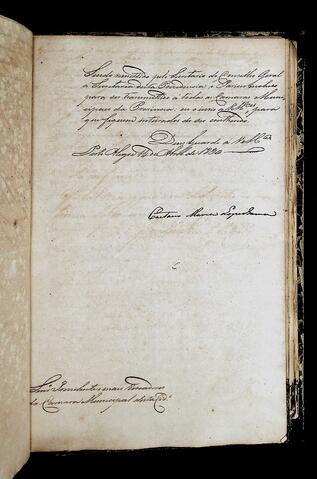 Sendo remettidos pelo Secretario do Conselho Geral
a Secretaria desta Presidencia, o Parecer
para ser transmettido a todas as Camaras Munici
paes da Provincia: os envio a V. Mces para
que fiquem inteirados do seu contheudo.
Deos Guarde a V. Mces
Porto Alegre de Abril de 1830
Caetano Maria Lopes Gama
Snrs Presidente e mais Vereadores
da Camara Municipal desta Cide